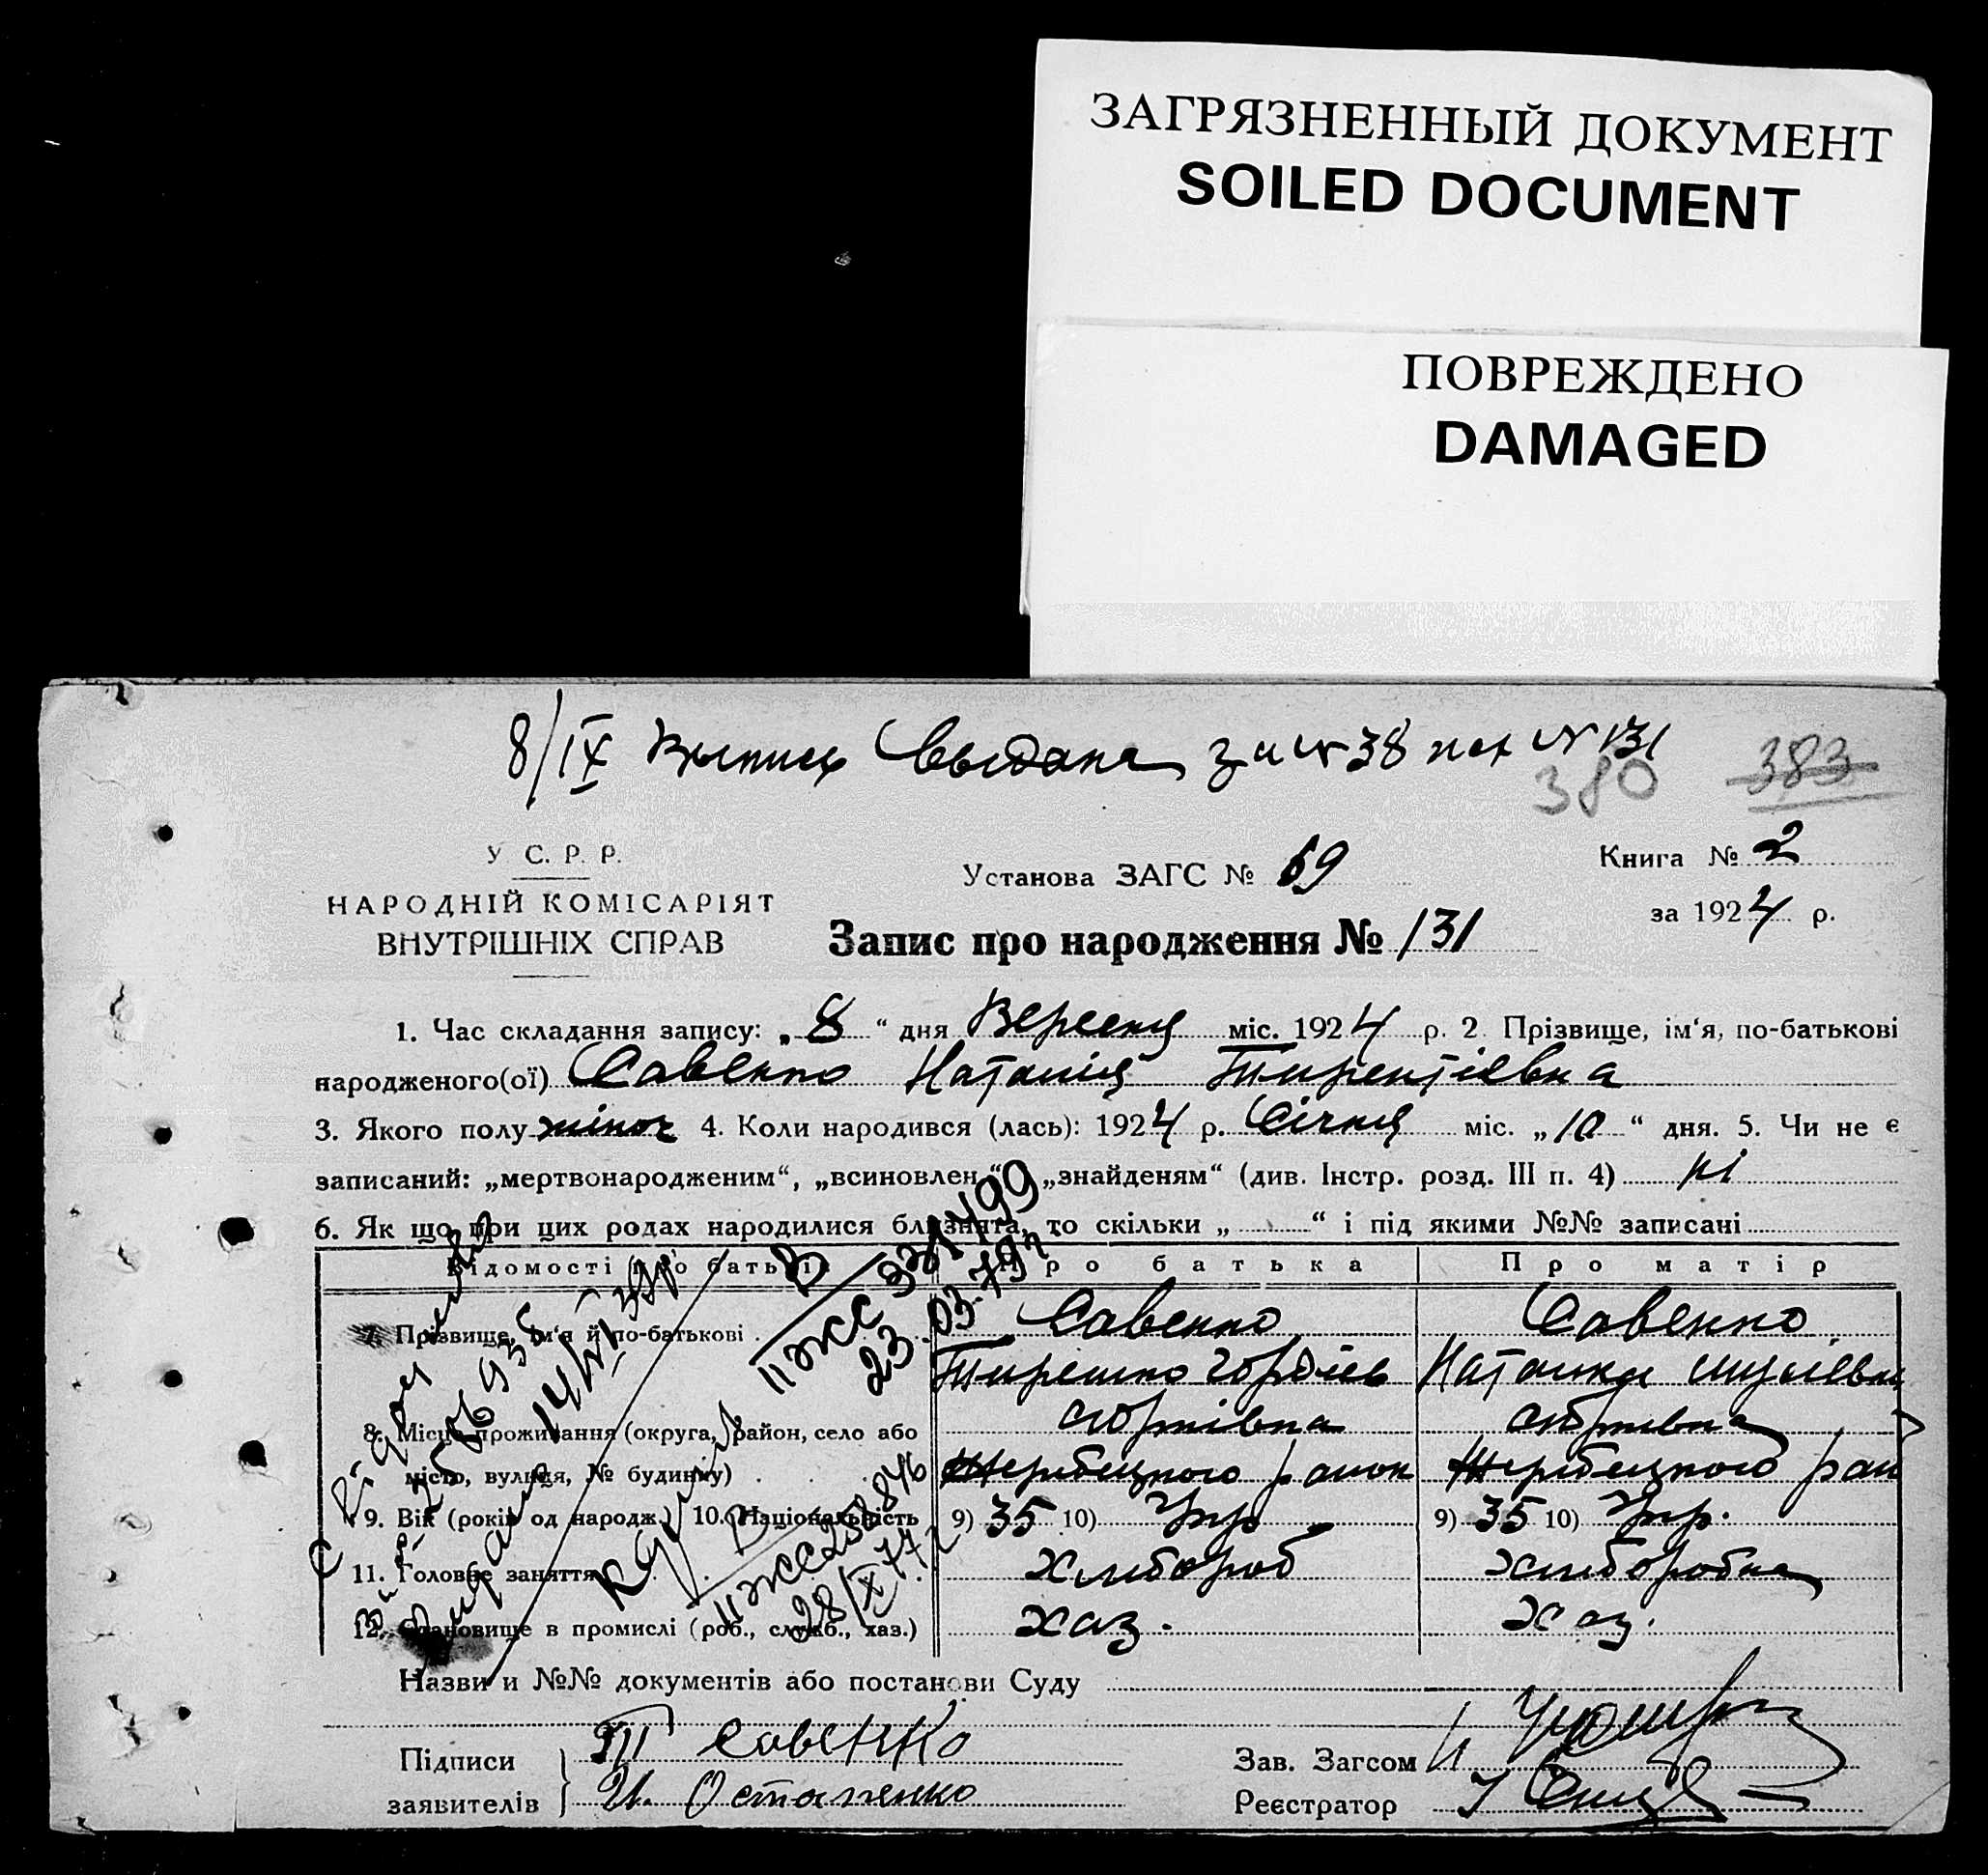 ЗАГРЯЗНЕННЫЙ ДОКУМЕНТ
SOILED DOCUMENT
ПОВРЕЖДЕНО
DAMAGED
8/IX Выпись выдана за № 38 №131
380 383
У С. Р. Р.
НАРОДНІЙ КОМІСАРІЯТ
ВНУТРІШНІХ СПРАВ
Установа ЗАГС № 69
Книга № 2
за 1924 р.
Запис про народження № 131
1. Час складання запису: „8“ дня Вересня міс. 1924 р. 2. Прізвище, ім‘я, по-батькові
народженого(ої) Савенко Наталія Тирентіевна
3. Якого полу жіноч 4. Коли народився (лась): 1924 р. Січня міс. „10“ дня. 5. Чи не є
записаний: „мертвонародженим“, „всиновлен“, „знайденям“ (див. Інстр. розд. III п. 4) ні
6. Як що при цих родах народилися близнята, то скільки „ “ і під якими №№ записані
Відомості про батьків Про батька Про матір
7. Прізвище, ім‘я й по-батькові Савенко Савенко
Наталка
8. Місце проживання (округа, район, село або
місто, вулиця, № будинку) Жеребецкого район Жеребецкого рай
9. Вік (років од народж.) 10. Національність 9) 35 10) Укр. 9) 35 10) Укр.
11. Головне заняття хлибороб хлиборобка
12. Становище в промислі (роб., служб., хаз.) хаз. хаз.
II ЖС 331499
23.03.79
14/VI
II ЖС 258846
28/X 77
Назви и №№ документів або постанови Суду
Підписи Савенко
заявителів И. Остапенко
Зав. Загсом
Реєстратор